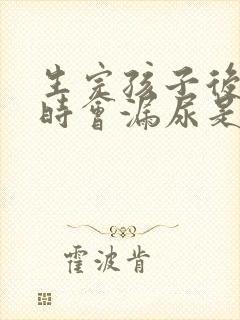 生完孩子後
時會漏尿是
霍波肯